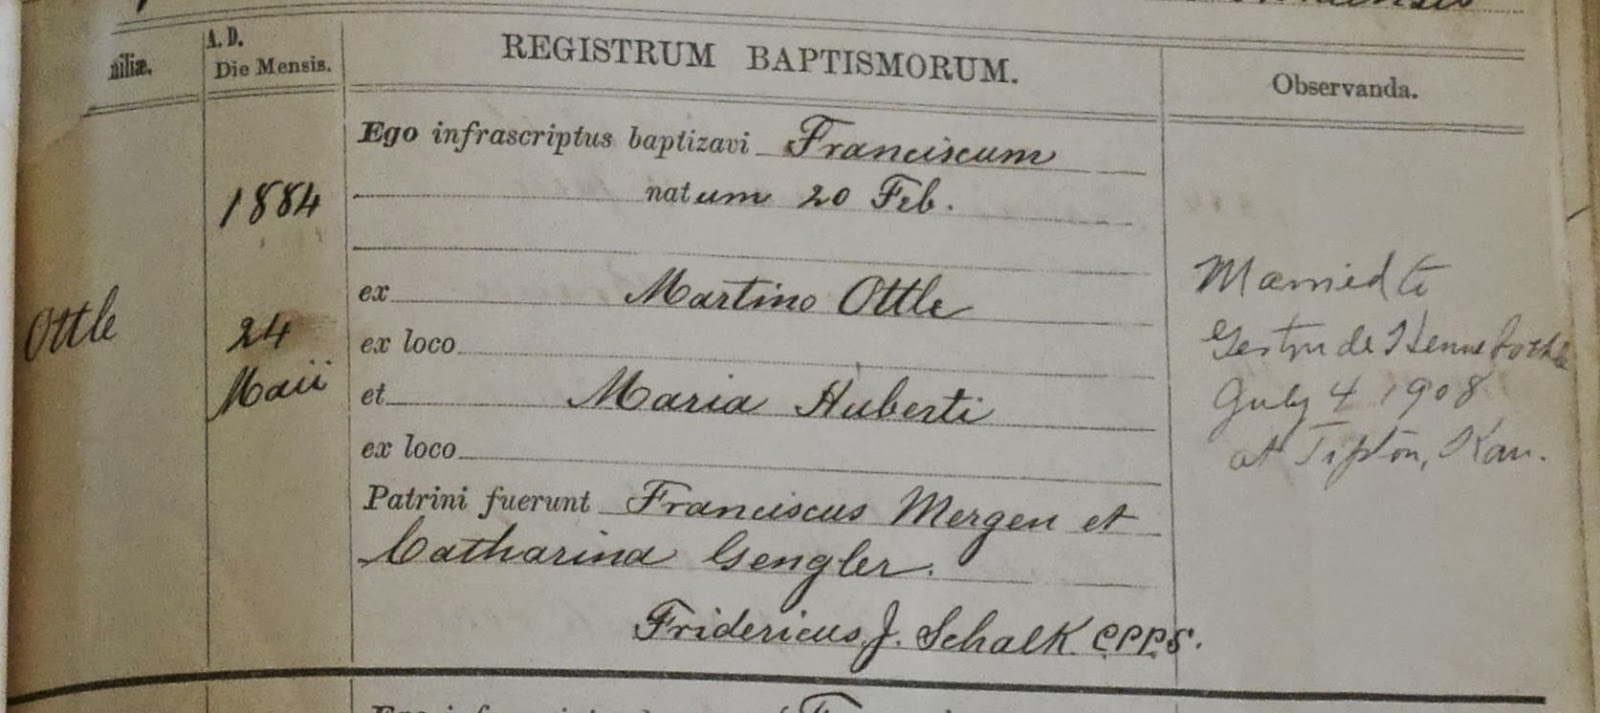 A. D.
niliæ.
Die Mensis.
REGISTRUM BAPTISMORUM.
Observanda.
Ego infrascriptus baptizavi Franciscum
1884
natum 20 Feb.
Ottle
24
Maii
ex Martino Ottle
ex loco
et Maria Huberti
ex loco
Patrini fuerunt Franciscus Mergen et
Catharina Gengler.
Fridericus J. Schalk C.PP.S.
Married to
Gertrude
July 4 1908
at Tipton, Kan.